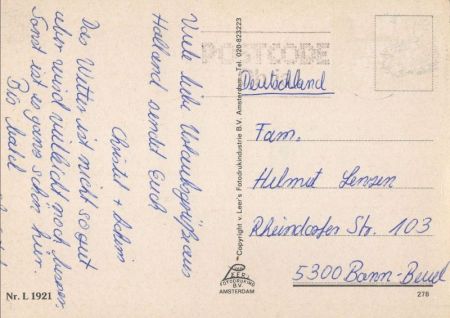 Viele liebe Urlaubsgrüße aus
Holland sendet Euch
Christel + Achim
Das Wetter ist nicht so gut
aber wird vielleicht noch besser
Sonst ist es ganz schön hier.
Bis bald
POSTCODE
Deutschland
Fam.
Helmut Lensen
Rheindorfer Str. 103
5300 Bonn-Beuel
Copyright v. Leer's Fotodrukindustrie B.V. Amsterdam, Tel. 020-823223
LEER
FOTODRUKIND
B.V.
AMSTERDAM
Nr. L 1921
278